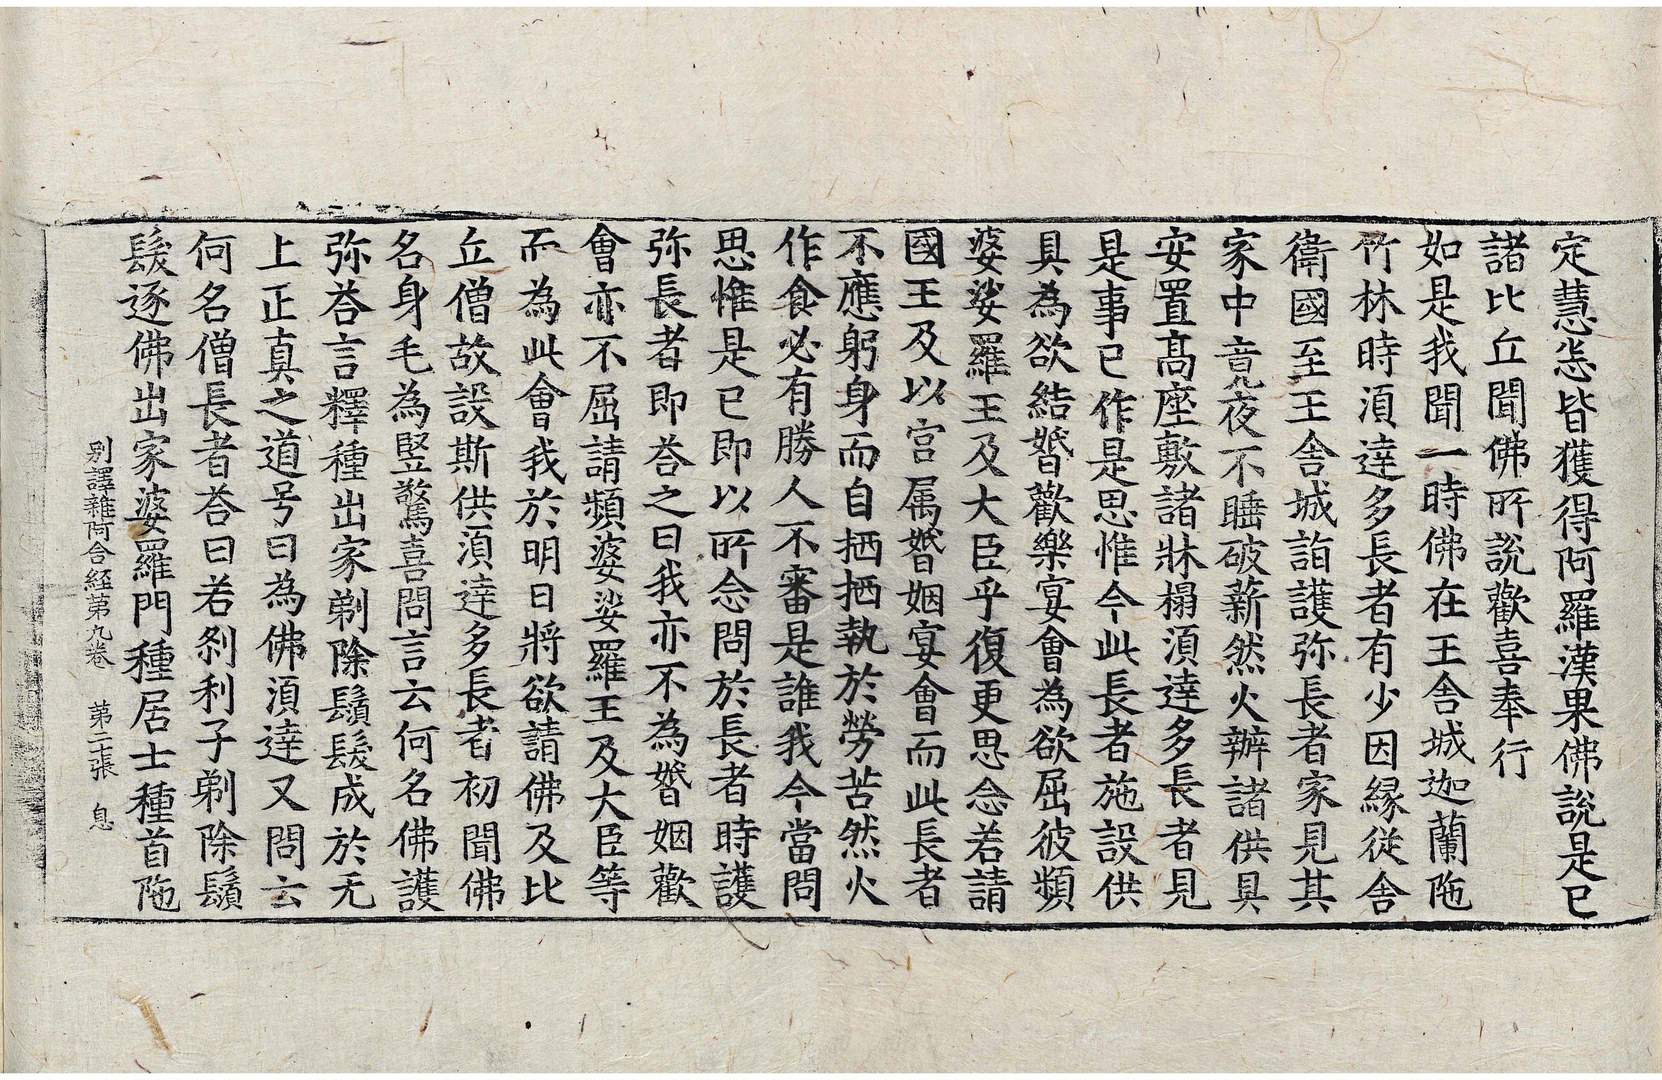 定慧悉皆獲得阿羅漢果佛說是已
諸比丘聞佛所說歡喜奉行
如是我聞一時佛在王舍城迦蘭陁
竹林時湏逹多長者有少因緣從舍
衛國至王舍城詣護弥長者家見其
家中竟夜不睡破薪然火辦諸供具
安置髙座敷諸牀榻湏逹多長者見
是事已作是思惟今此長者施設供
具為欲結婚歡樂宴會為欲屈彼頻
婆娑羅王及大臣乎復更思念若請
國王及以宮属婚姻宴會而此長者
不應躬身而自栖栖執於勞苦然火
作食必有勝人不審是誰我今當問
思惟是已即以所念問於長者時護
弥長者即荅之曰我亦不為婚姻歡
會亦不屈請頻婆娑羅王及大臣等
而為此會我於明日將欲請佛及比
丘僧故設斯供湏逹多長者初聞佛
名身毛為竪驚喜問言云何名佛護
弥荅言釋種出家剃除鬚髮成於无
上正真之道号曰為佛湏逹又問云
何名僧長者荅曰若刹利子剃除鬚
髮逐佛出家婆羅門種居士種首陁
别譯雜阿含経第九卷 第二張 息